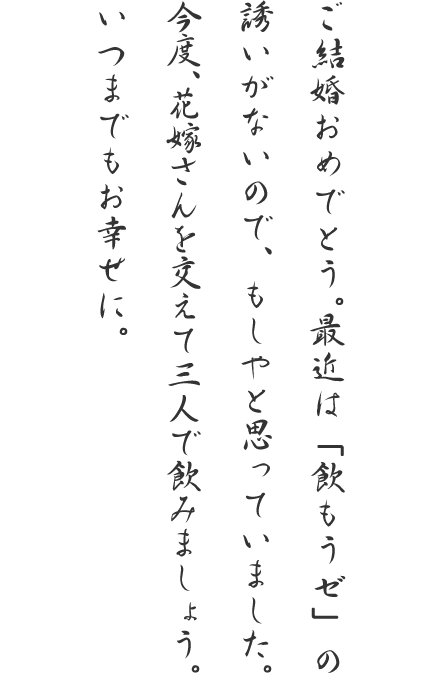 ご結婚おめでとう。最近は「飲もうゼ」の
誘いがないので、もしやと思っていました。
今度、花嫁さんを交えて三人で飲みましょう。
いつまでもお幸せに。